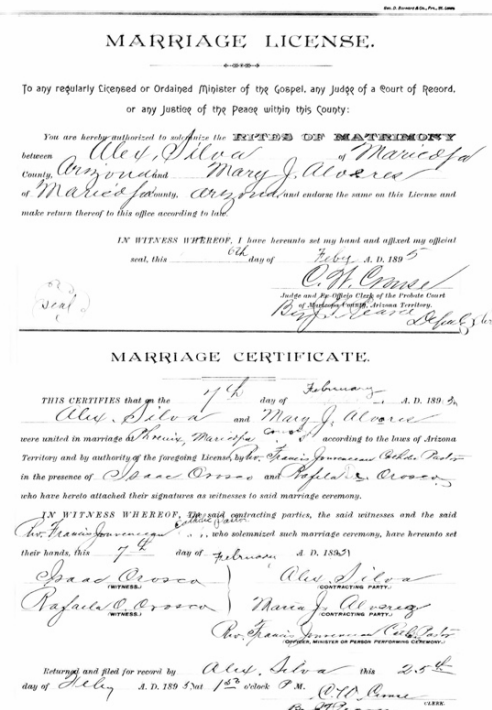 Geo. D. Barnard & Co., Pro., St. Louis
MARRIAGE LICENSE.
To any regularly Licensed or Ordained Minister of the Gospel, any Judge of a Court of Record,
or any Justice of the Peace within this County:
You are hereby authorized to solemnize the RITES OF MATRIMONY
between Alex. Silva of Maricopa
County, Arizona and Mary J. Alvares
of Maricopa County, Arizona, and endorse the same on this License and
make return thereof to this office according to law.
IN WITNESS WHEREOF, I have hereunto set my hand and affixed my official
seal, this 6th day of Feby A. D. 1895
C. W. Crouse
Judge and Ex-Officio Clerk of the Probate Court
of Maricopa County, Arizona Territory.
By Deputy
seal
MARRIAGE CERTIFICATE.
THIS CERTIFIES that on the 7th day of February A. D. 1895
Alex. Silva and Mary J. Alvares
were united in marriage at Phoenix, Maricopa Co. according to the laws of Arizona
Territory and by authority of the foregoing License, by Rev. Francis Cath. Pastor
in the presence of Isaac Orosco and Rafaela Orosco
who have hereto attached their signatures as witnesses to said marriage ceremony.
IN WITNESS WHEREOF, The said contracting parties, the said witnesses and the said
Rev. Francis Catholic Pastor who solemnized such marriage ceremony, have hereunto set
their hands, this 7th day of February A. D. 1895
Isaac Orosco Alex. Silva
(WITNESS.) (CONTRACTING PARTY.)
Rafaela O. Orosco Maria J. Alvarez
(WITNESS.) (CONTRACTING PARTY.)
Rev. Francis Cath. Pastor
(OFFICER, MINISTER OR PERSON PERFORMING CEREMONY.)
Returned and filed for record by Alex. Silva this 25th
day of Feby A. D. 1895 at 1 o'clock P. M.
C. W. Crouse
CLERK.